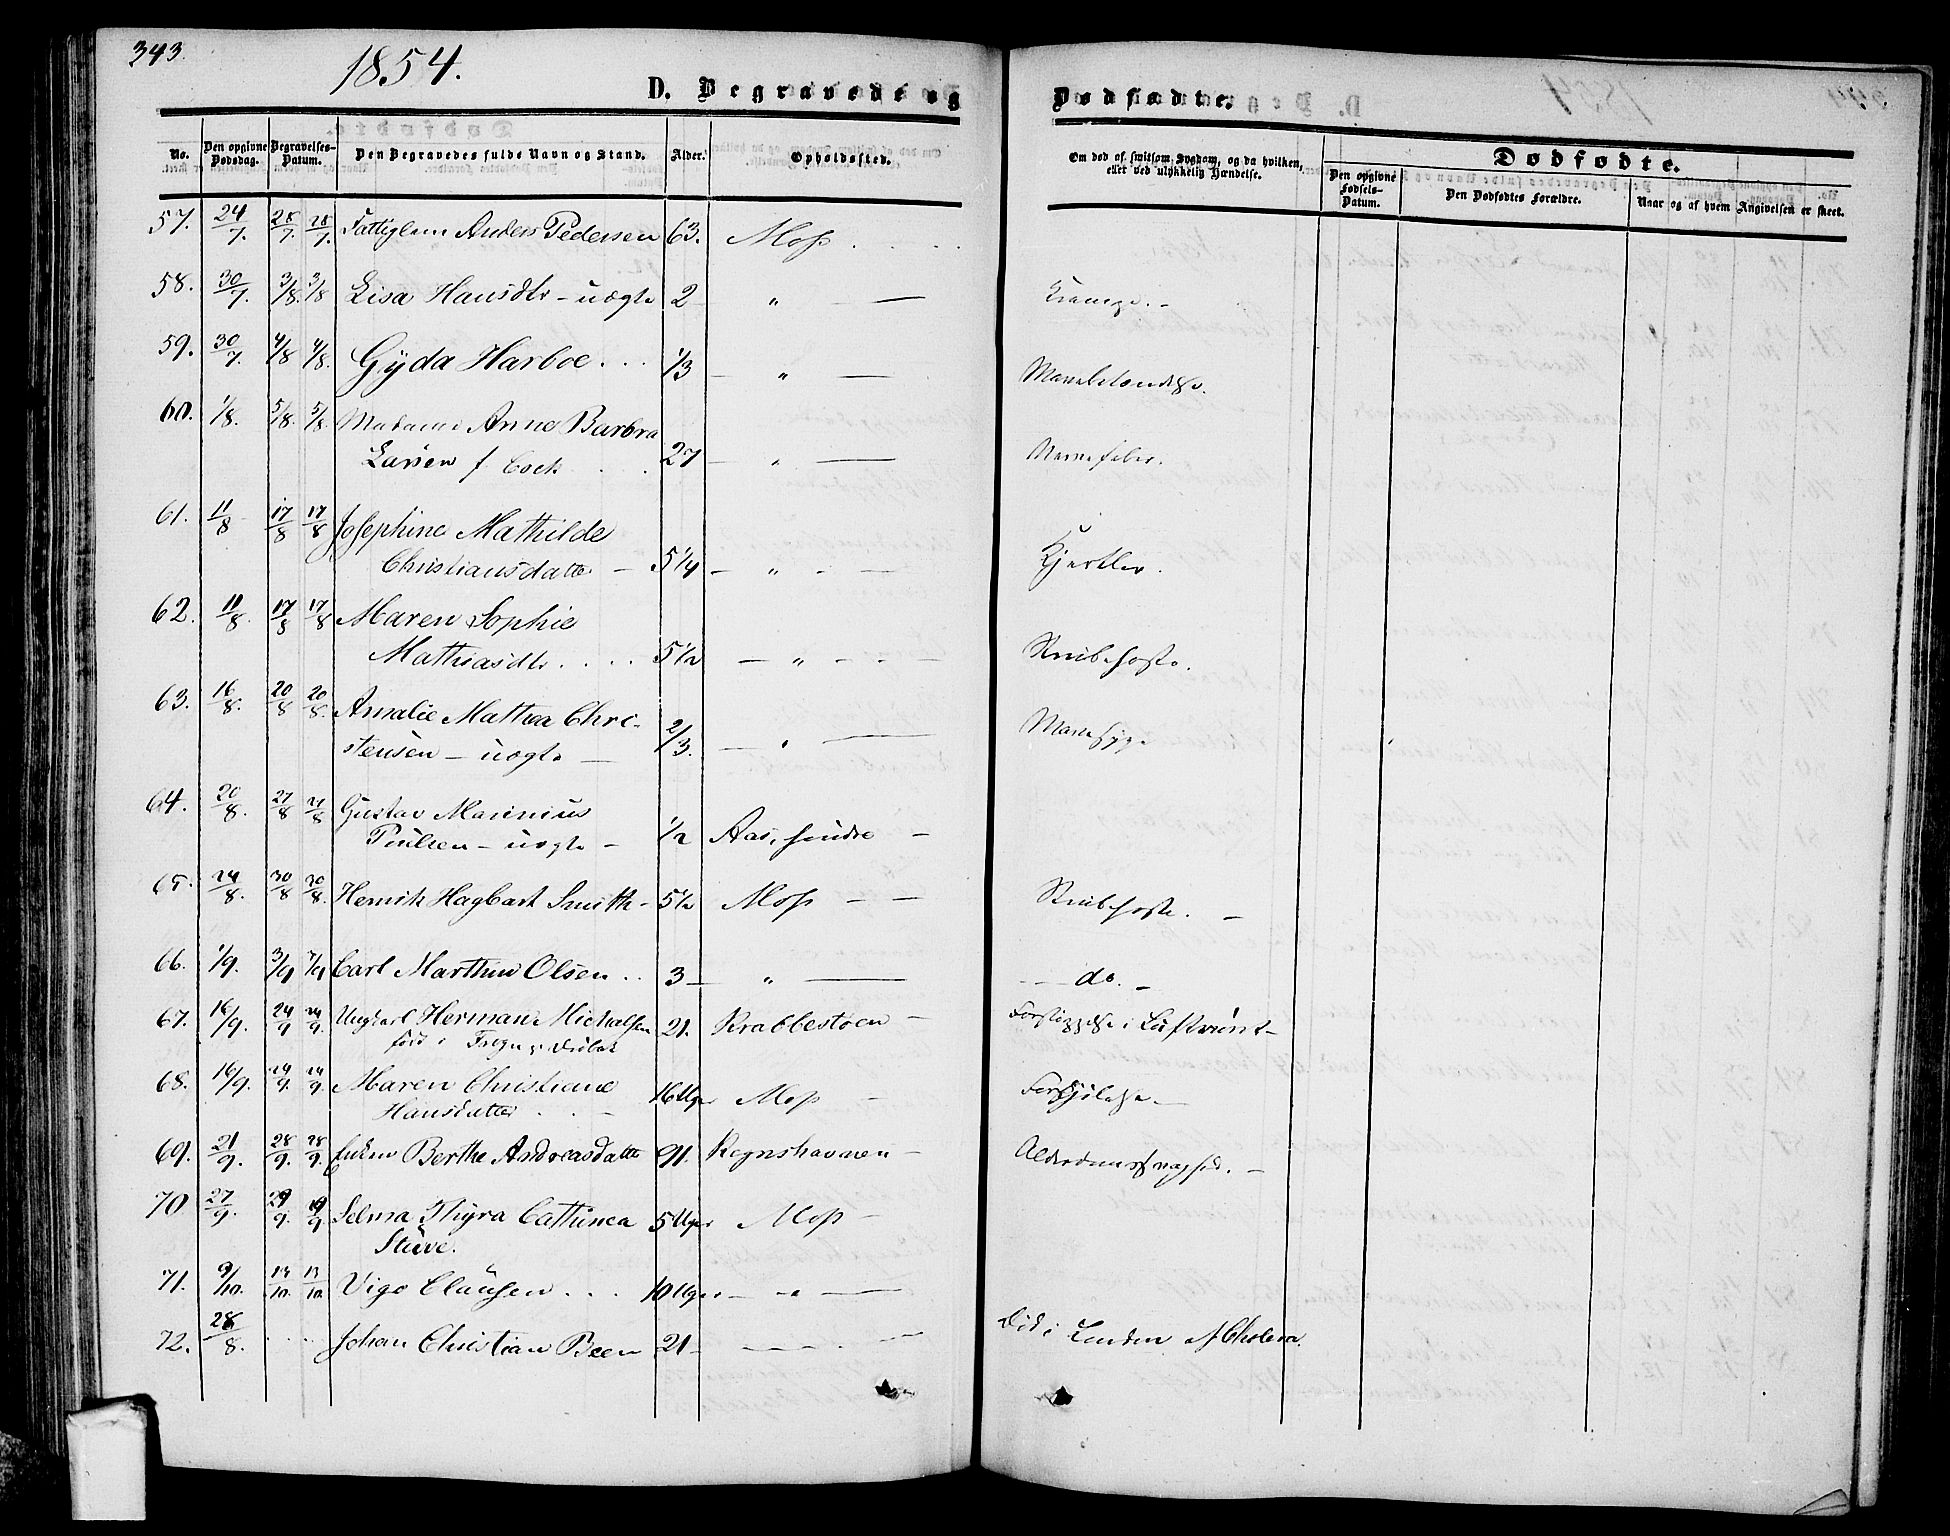 343.
1854.
D. Begravede og
Dødfødte.
No. Den opgivne Dødsdag. Begravelses-Datum. Den Begravedes fulde Navn og Stand. Alder. Opholdssted.
Om død af smitsom Sygdom, og da hvilken, eller ved ulykkelig Hændelse.
Dødfødte.
Den opgivne Fødsels-Datum. Den Dødfødtes Forældre. Naar og af hvem Angivelsen er skeet.
57. 24/7. 28/7. 28/7. Fattiglem Anders Pedersen 63. Moss
58. 30/7. 3/8. 3/8 Lisa Hansdtr - uægte 2 " — Krampe. -
59. 30/7. 4/8 4/8. Gyda Harboe . . . 1/3 — " — Mavebetændelse.
60. 1/8. 5/8. 5/8. Madame Anne Barbra
Larsen f. Cock 27 — " — Nervefeber.
61. 11/8 17/8 17/8 Josephine Mathilde
Christiansdatter — 5 1/4 — " — Kjertler.
62. 11/8. 17/8 17/8 Maren Sophie
Mathiasdtr. . . . 5 1/2 — " — Strubehoste.
63. 16/8. 20/8 20/8. Amalie Mathea Chri-
stensen - uægte — 2/3. — " — Mavesyge
64. 20/8. 27/8 27/8 Gustav Marinius
Paulsen - uægte - 1/2 Aas, søndre —
65. 24/8. 30/8 30/8. Henrik Hagbart Smith - 5 1/2 Moss — Strubehoste. —
66. 1/9. 3/9 7/9 Carl Marthin Olsen . . 3 — " — do. -
67. 16/9. 24/9 24/9. Ungkarl Herman Michalsen
født i 21. Krabbestøen — Forstoppelse i Luftrøret -
68. 16/9. 24/9. 24/9. Maren Christiane
Hansdatter . . — 16 Uger Moss — Forkjølelse. —
69. 21/9. 28/9. 28/9. Enken Berthe Andreasdatter 91. Rognshavnen — Alderdomssvaghed. —
70 27/9. 29/9. 29/9. Selma Thyra Cathinca
Stüve. 5 Uger Moss —
71. 9/10. 13/10. 13/10 Vigo Clausen . . . 10 Uger — " —
72. 28/8. . . . Johan Christian Been 21 — Død i London af Cholera.